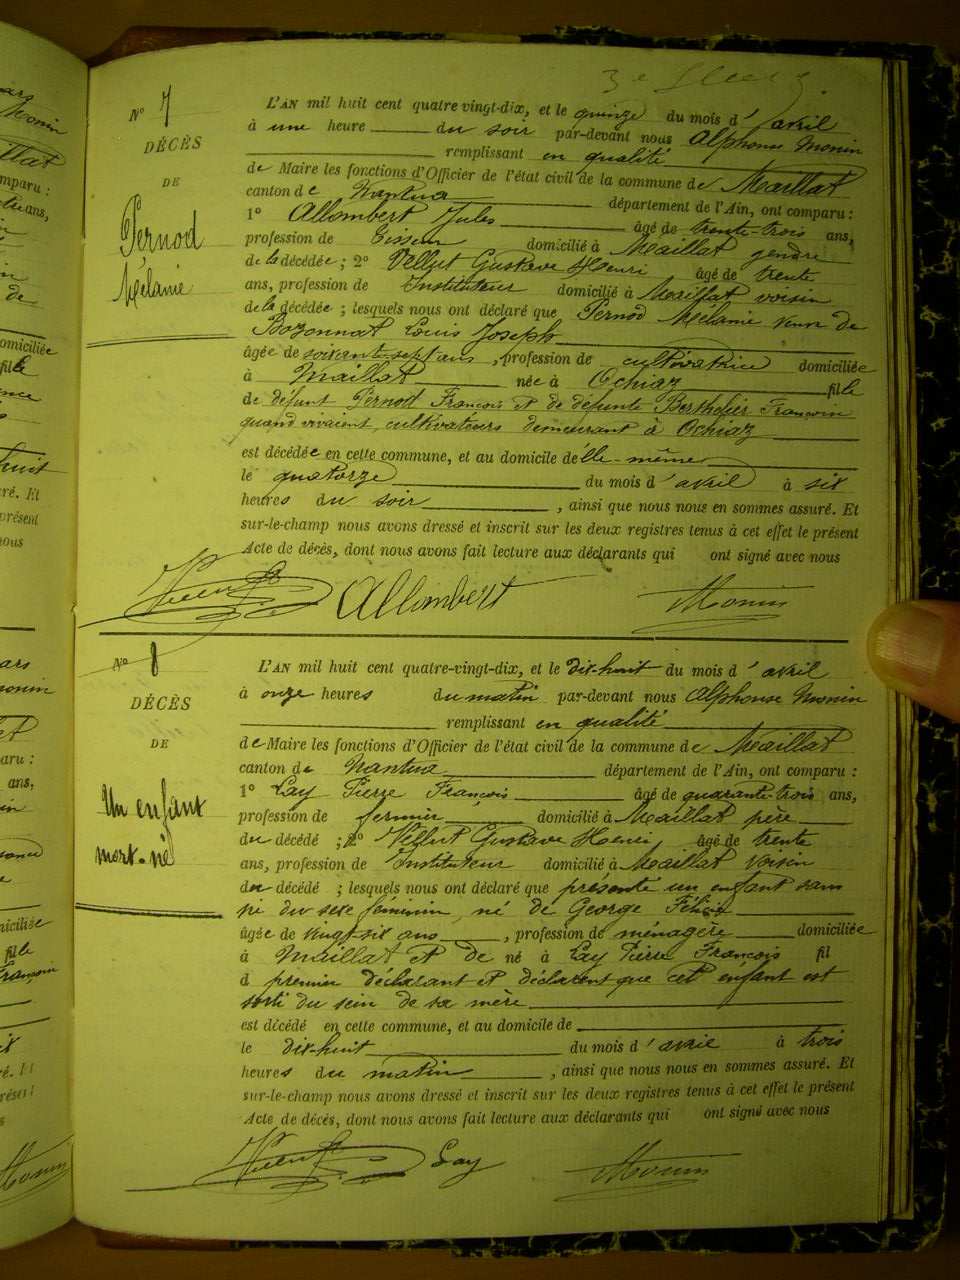 3e
N° 7
DÉCÈS
DE
Pernod
Mélanie
L'AN mil huit cent quatre vingt-dix, et le quinze du mois d'avril
à une heure du soir par-devant nous Alphonse Monin
remplissant en qualité
de Maire les fonctions d'Officier de l'état civil de la commune de Maillat
canton de Nantua département de l'Ain, ont comparu :
1° Allombert Jules âgé de trente-trois ans,
profession de Tisseur domicilié à Maillat gendre
de la décédée ; 2° Gustave Henri âgé de trente
ans, profession de Instituteur domicilié à Maillat voisin
de la décédée ; lesquels nous ont déclaré que Pernod Mélanie veuve de
Bozonnat Louis Joseph
âgée de soixante-sept ans, profession de cultivatrice domiciliée
à Maillat née à Ochiaz fille
de défunt Pernod François et de défunte Berthelier
quand vivaient, cultivateurs demeurant à Ochiaz
est décédée en cette commune, et au domicile d'elle-même
le quatorze du mois d'avril à six
heures du soir, ainsi que nous nous en sommes assuré. Et
sur-le-champ nous avons dressé et inscrit sur les deux registres tenus à cet effet le présent
Acte de décès, dont nous avons fait lecture aux déclarants qui ont signé avec nous
Allombert Monin
N° 8
DÉCÈS
DE
Un enfant
mort-né
L'AN mil huit cent quatre-vingt-dix, et le dix-huit du mois d'avril
à onze heures du matin par-devant nous Alphonse Monin
remplissant en qualité
de Maire les fonctions d'Officier de l'état civil de la commune de Maillat
canton de Nantua département de l'Ain, ont comparu :
1° Lay Pierre François âgé de quarante-trois ans,
profession de fermier domicilié à Maillat père
du décédé ; 2° Gustave Henri âgé de trente
ans, profession de Instituteur domicilié à Maillat voisin
du décédé ; lesquels nous ont déclaré que présenté un enfant sans
vie du sexe féminin, né de George
âgée de vingt-six ans, profession de ménagère domiciliée
à Maillat et de né à Lay Pierre François fil
d premier déclarant et déclarent que cet enfant est
sorti du sein de sa mère
est décédé en cette commune, et au domicile de
le dix-huit du mois d'avril à trois
heures du matin, ainsi que nous nous en sommes assuré. Et
sur-le-champ nous avons dressé et inscrit sur les deux registres tenus à cet effet le présent
Acte de décès, dont nous avons fait lecture aux déclarants qui ont signé avec nous
Lay Monin